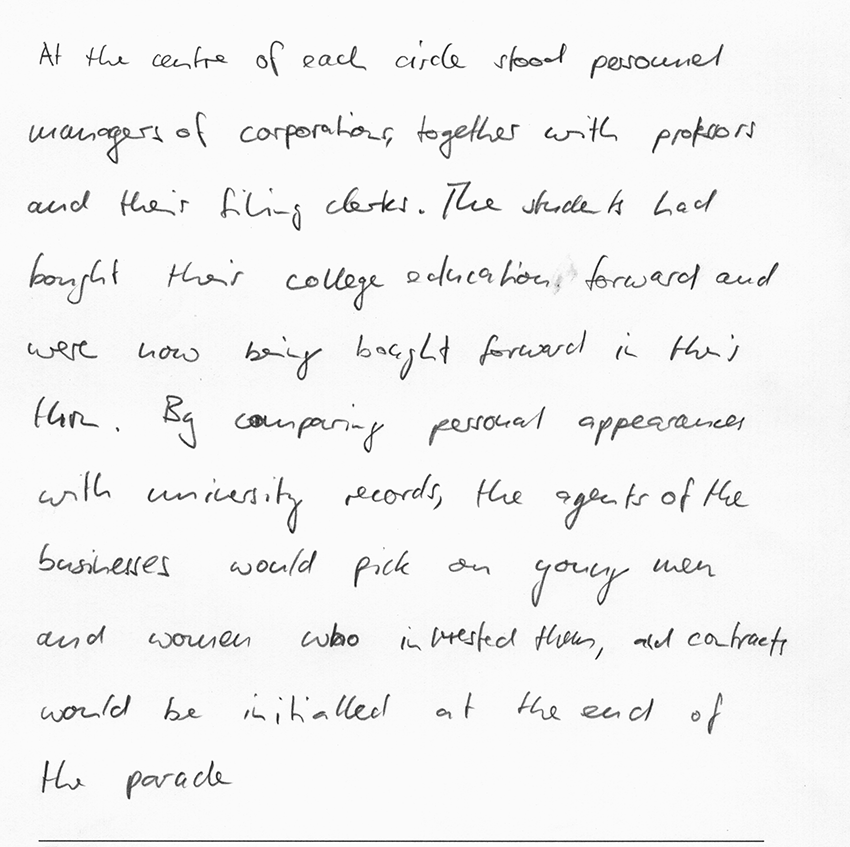 At the centre of each circle stood personnel
managers of corporations, together with professors
and their filing clerks. The students had
bought their college education, forward and
were now being bought forward in their
turn. By comparing personal appearances
with university records, the agents of the
businesses would pick on young men
and women who interested them, and contracts
would be initialled at the end of
the parade